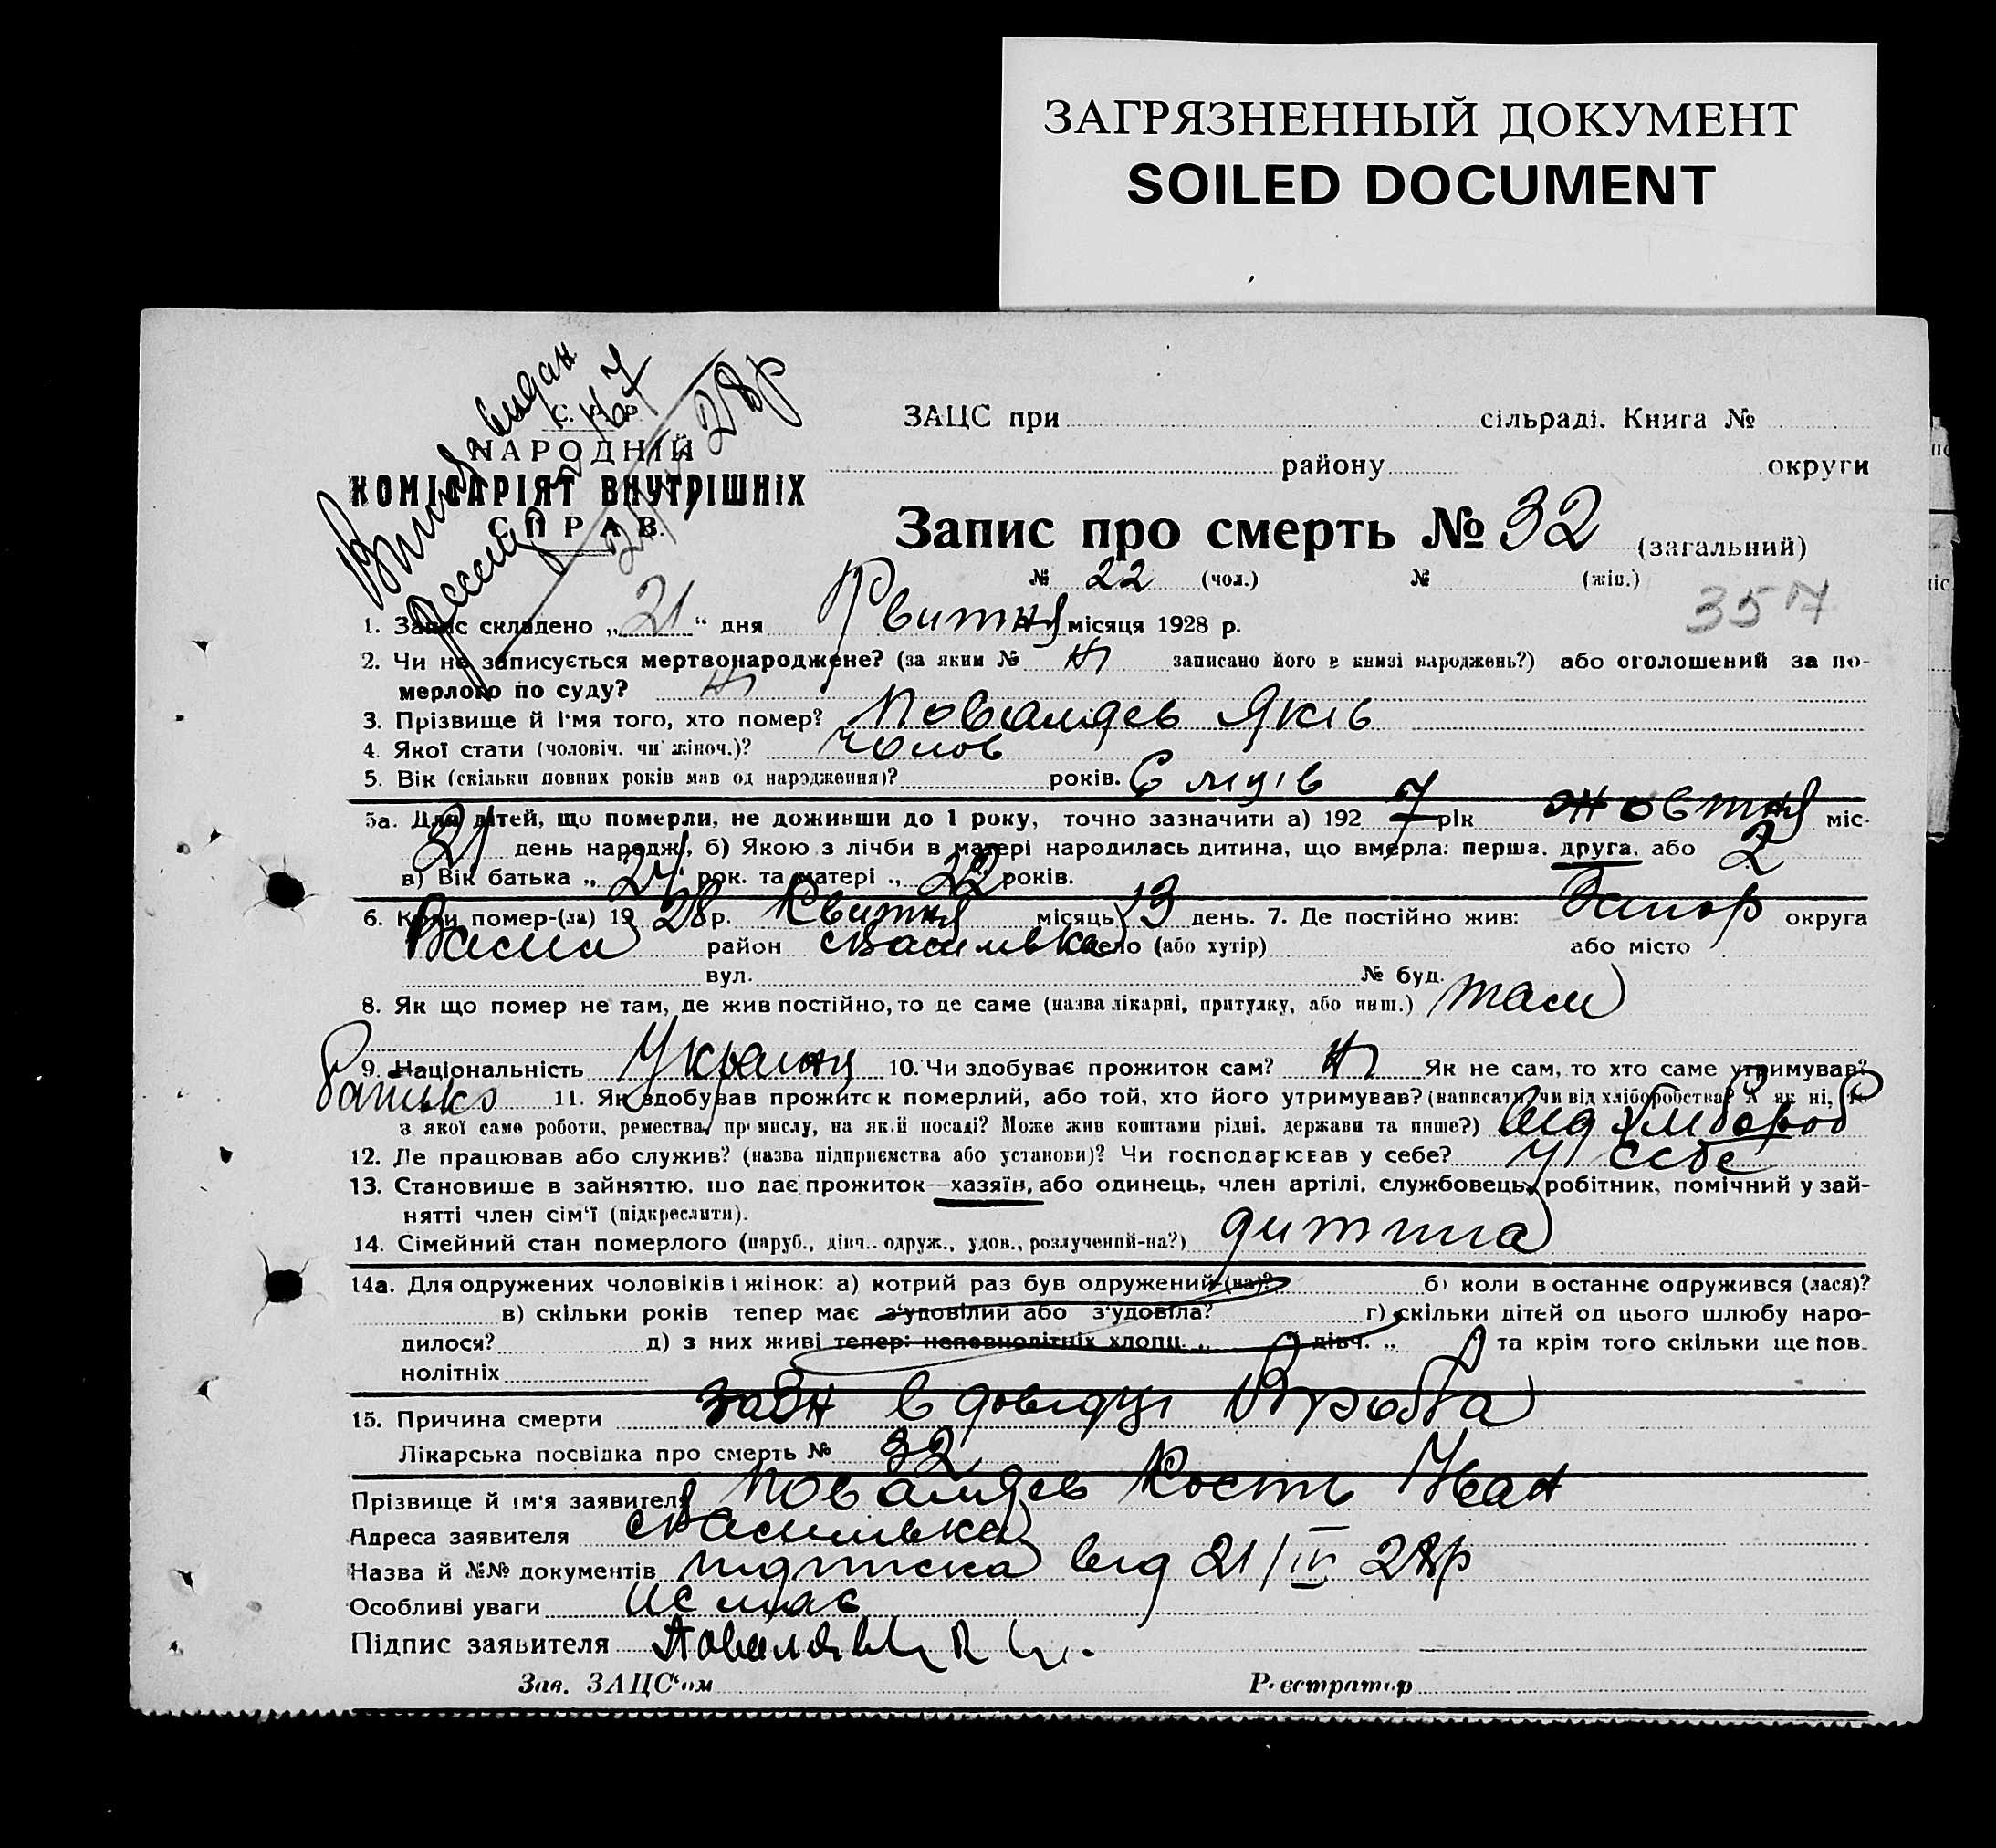 ЗАГРЯЗНЕННЫЙ ДОКУМЕНТ
SOILED DOCUMENT
НАРОДНІЙ
КОМІСАРІЯТ ВНУТРІШНІХ
СПРАВ.
28р
ЗАЦС при сільраді. Книга №
району округи
Запис про смерть № 32 (загальний)
№ 22 (чол.) № (жін.)
357
1. Запис складено „ 21 “ дня Квитня місяця 1928 р.
2. Чи не записується мертвонароджене? (за яким № ні записано його в книзі народжень?) або оголошений за по-
мерлого по суду? ні
3. Прізвище й ім'я того, хто помер? Поваляєв Яків
4. Якої стати (чоловіч. чи жіноч.)? чолов
5. Вік (скільки повних років мав од народження)? років. 6 міців
5а. Для дітей, що померли, не доживши до 1 року, точно зазначити а) 1927 рік жовтня міс.
21 день народж., б) Якою з лічби в матері народилась дитина, що вмерла: перша, друга, або 2
в) Вік батька „ 24 рок. та матері „ 22 років.
6. Коли помер-(ла) 1928 р. Квитня місяць 13 день. 7. Де постійно жив: Запор округа
Васил район с Василівка село (або хутір) або місто
вул. № буд.
8. Як що помер не там, де жив постійно, то де саме (назва лікарні, притулку, або инш.) там
9. Національність Українц 10. Чи здобуває прожиток сам? ні Як не сам, то хто саме утримував?
батько 11. Як здобував прожиток померлий, або той, хто його утримував? (написати, чи від хліборобства? А як ні, то
з якої саме роботи, ремества, промислу, на якій посаді? Може жив коштами рідні, держави та инше?) від хлібороб
12. Де працював або служив? (назва підприємства або установи)? Чи господарював у себе? у себе
13. Становище в зайняттю, що дає прожиток—хазяїн, або одинець, член артілі, службовець, робітник, помічний у зай-
нятті член сім'ї (підкреслити).
14. Сімейний стан померлого (паруб., дівч., одруж., удов., розлучений-на?) дитина
14а. Для одружених чоловіків і жінок: а) котрий раз був одружений-(на)? б) коли востаннє одружився (лася)?
в) скільки років тепер має з'удовілий або з'удовіла? г) скільки дітей од цього шлюбу наро-
дилося? д) з них живі тепер: неповнолітніх хлопц. „ „ дівч. „ та крім того скільки ще пов-
нолітніх
15. Причина смерти зазн в довідці
Лікарська посвідка про смерть № 32
Прізвище й ім'я заявителя Поваляєв Кость Иван
Адреса заявителя с Василівка
Назва й №№ документів підписка від 21/IV 28р
Особливі уваги не має
Підпис заявителя
Зав. ЗАЦС'ом Реєстратор